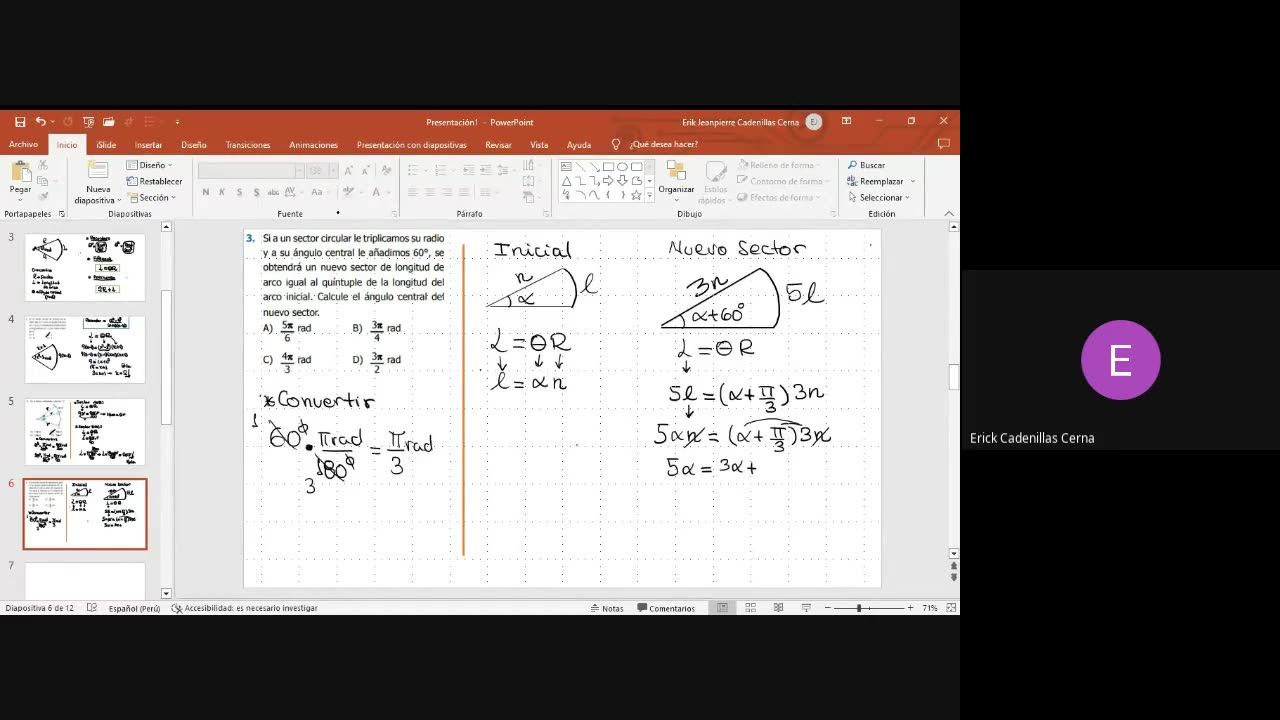 Presentación1 - PowerPoint
Erik Jeanpierre Cadenillas Cerna
EJ
Archivo Inicio iSlide Insertar Diseño Transiciones Animaciones Presentación con diapositivas Revisar Vista Ayuda ¿Qué desea hacer?
Pegar
Nueva diapositiva
Diseño
Restablecer
Sección
N K S S abc AV Aa A
Organizar
Estilos rápidos
Relleno de forma
Contorno de forma
Efectos de forma
Buscar
Reemplazar
Seleccionar
Portapapeles Diapositivas Fuente Párrafo Dibujo Edición
3
4
5
6
7
3. Si a un sector circular le triplicamos su radio
y a su ángulo central le añadimos 60°, se
obtendrá un nuevo sector de longitud de
arco igual al quíntuple de la longitud del
arco inicial. Calcule el ángulo central del
nuevo sector.
A) 5π/6 rad B) 3π/4 rad
C) 4π/3 rad D) 3π/2 rad
* Convertir
60° • π rad/180° = π/3 rad
1
3
Inicial
r
α
l
L = θR
l = αr
Nuevo Sector
3r
α+60°
5l
L = θR
5l = (α+π/3)3r
5αr = (α+π/3)3r
5α = 3α+
Diapositiva 6 de 12 Español (Perú) Accesibilidad: es necesario investigar Notas Comentarios 71%
E
Erick Cadenillas Cerna